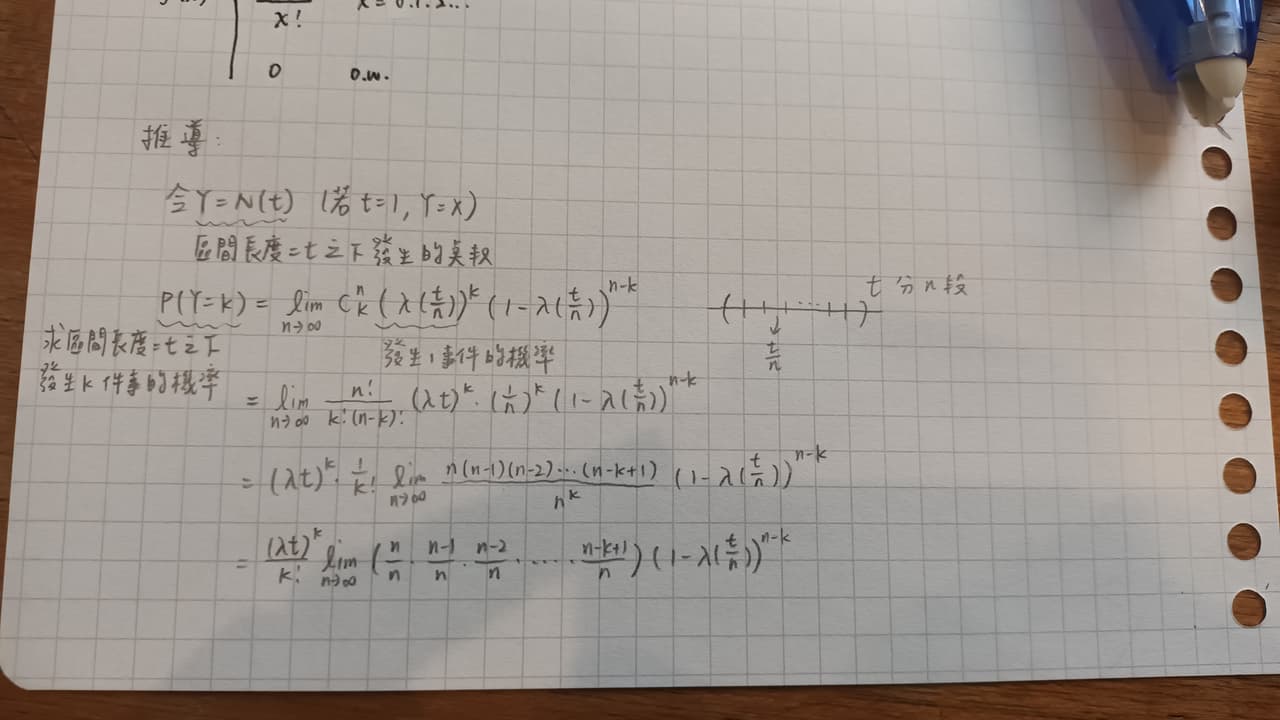 x!
0 o.w.
推導:
令Y=N(t) (若t=1, Y=X)
區間長度=t之下發生的其數
P(Y=k) = lim n→∞ C^n_k (λ(t/n))^k (1-λ(t/n))^{n-k}
t 分n段
t/n
求區間長度=t之下
發生k件事的機率
發生1事件的機率
= lim n→∞ n!/(k!(n-k)!) (λt)^k · (1/n)^k (1-λ(t/n))^{n-k}
= (λt)^k · 1/k! lim n→∞ n(n-1)(n-2)···(n-k+1)/n^k (1-λ(t/n))^{n-k}
= (λt)^k/k! lim n→∞ (n/n · n-1/n · n-2/n · ··· · n-k+1/n) (1-λ(t/n))^{n-k}